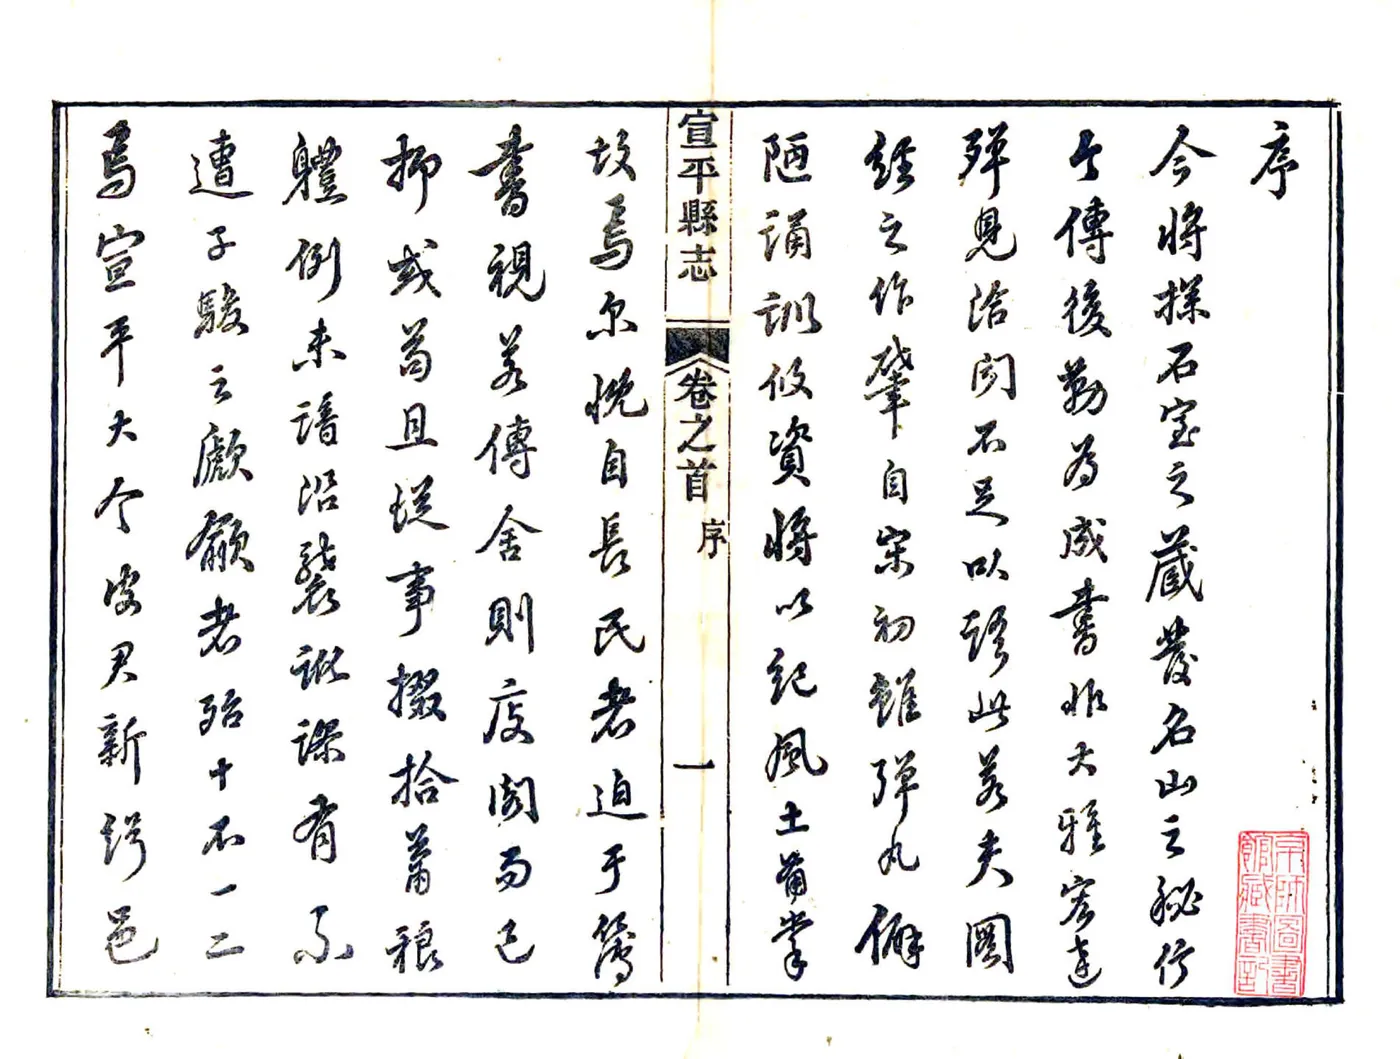 序
今將探石室之藏發名山之秘行
傳後勒為成書非大雅宏達
殫見洽聞不足以語此若夫圖
經之作肇自宋初雖彈丸僻
陋誦訓攸資將以紀風土備掌
宣平縣志 卷之首 序 一
故焉尔自長民者迫于簿
書視若傳舍則庋閣而已
抑或苟且從事掇拾蕭稂
體例未諳沿襲訛謬有不
遭子駿之者殆十不一二
焉宣平大令皮君新邑
京師圖書
館藏書記